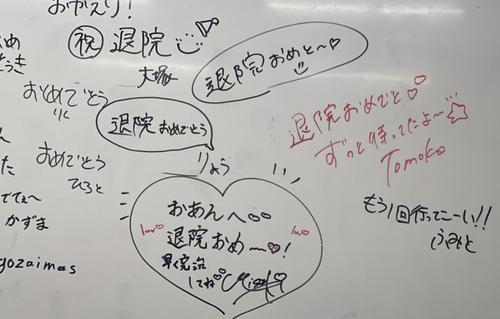 おかえり!
祝 退院
大塚
退院おめと〜♡
おめでとう
退院おめでとう
りょう
おめでとう
ひろと
でてぇへ
かずま
gozaimas
退院おめでと♡
ずっと待ってたよ〜
Tomoko
おあんへ
退院おめ〜♡!
luv♡
早く完治
してね♡
もう1回行ってこーい!!
ふみと